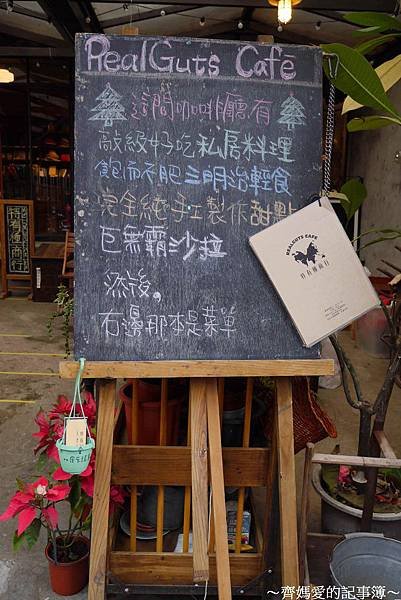 RealGuts Café
這間咖啡廳有
敲級好吃私房料理
飽而不肥三明治輕食
完全純手工製作甜點
巨無霸沙拉
然後,
右邊那本是菜單
REALGUTS CAFE
特有種商行
特有種商行
~齊媽愛の記事簿~